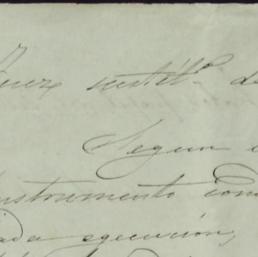 Juez sustit.º de
Segun
instrumento com
ada egecución,